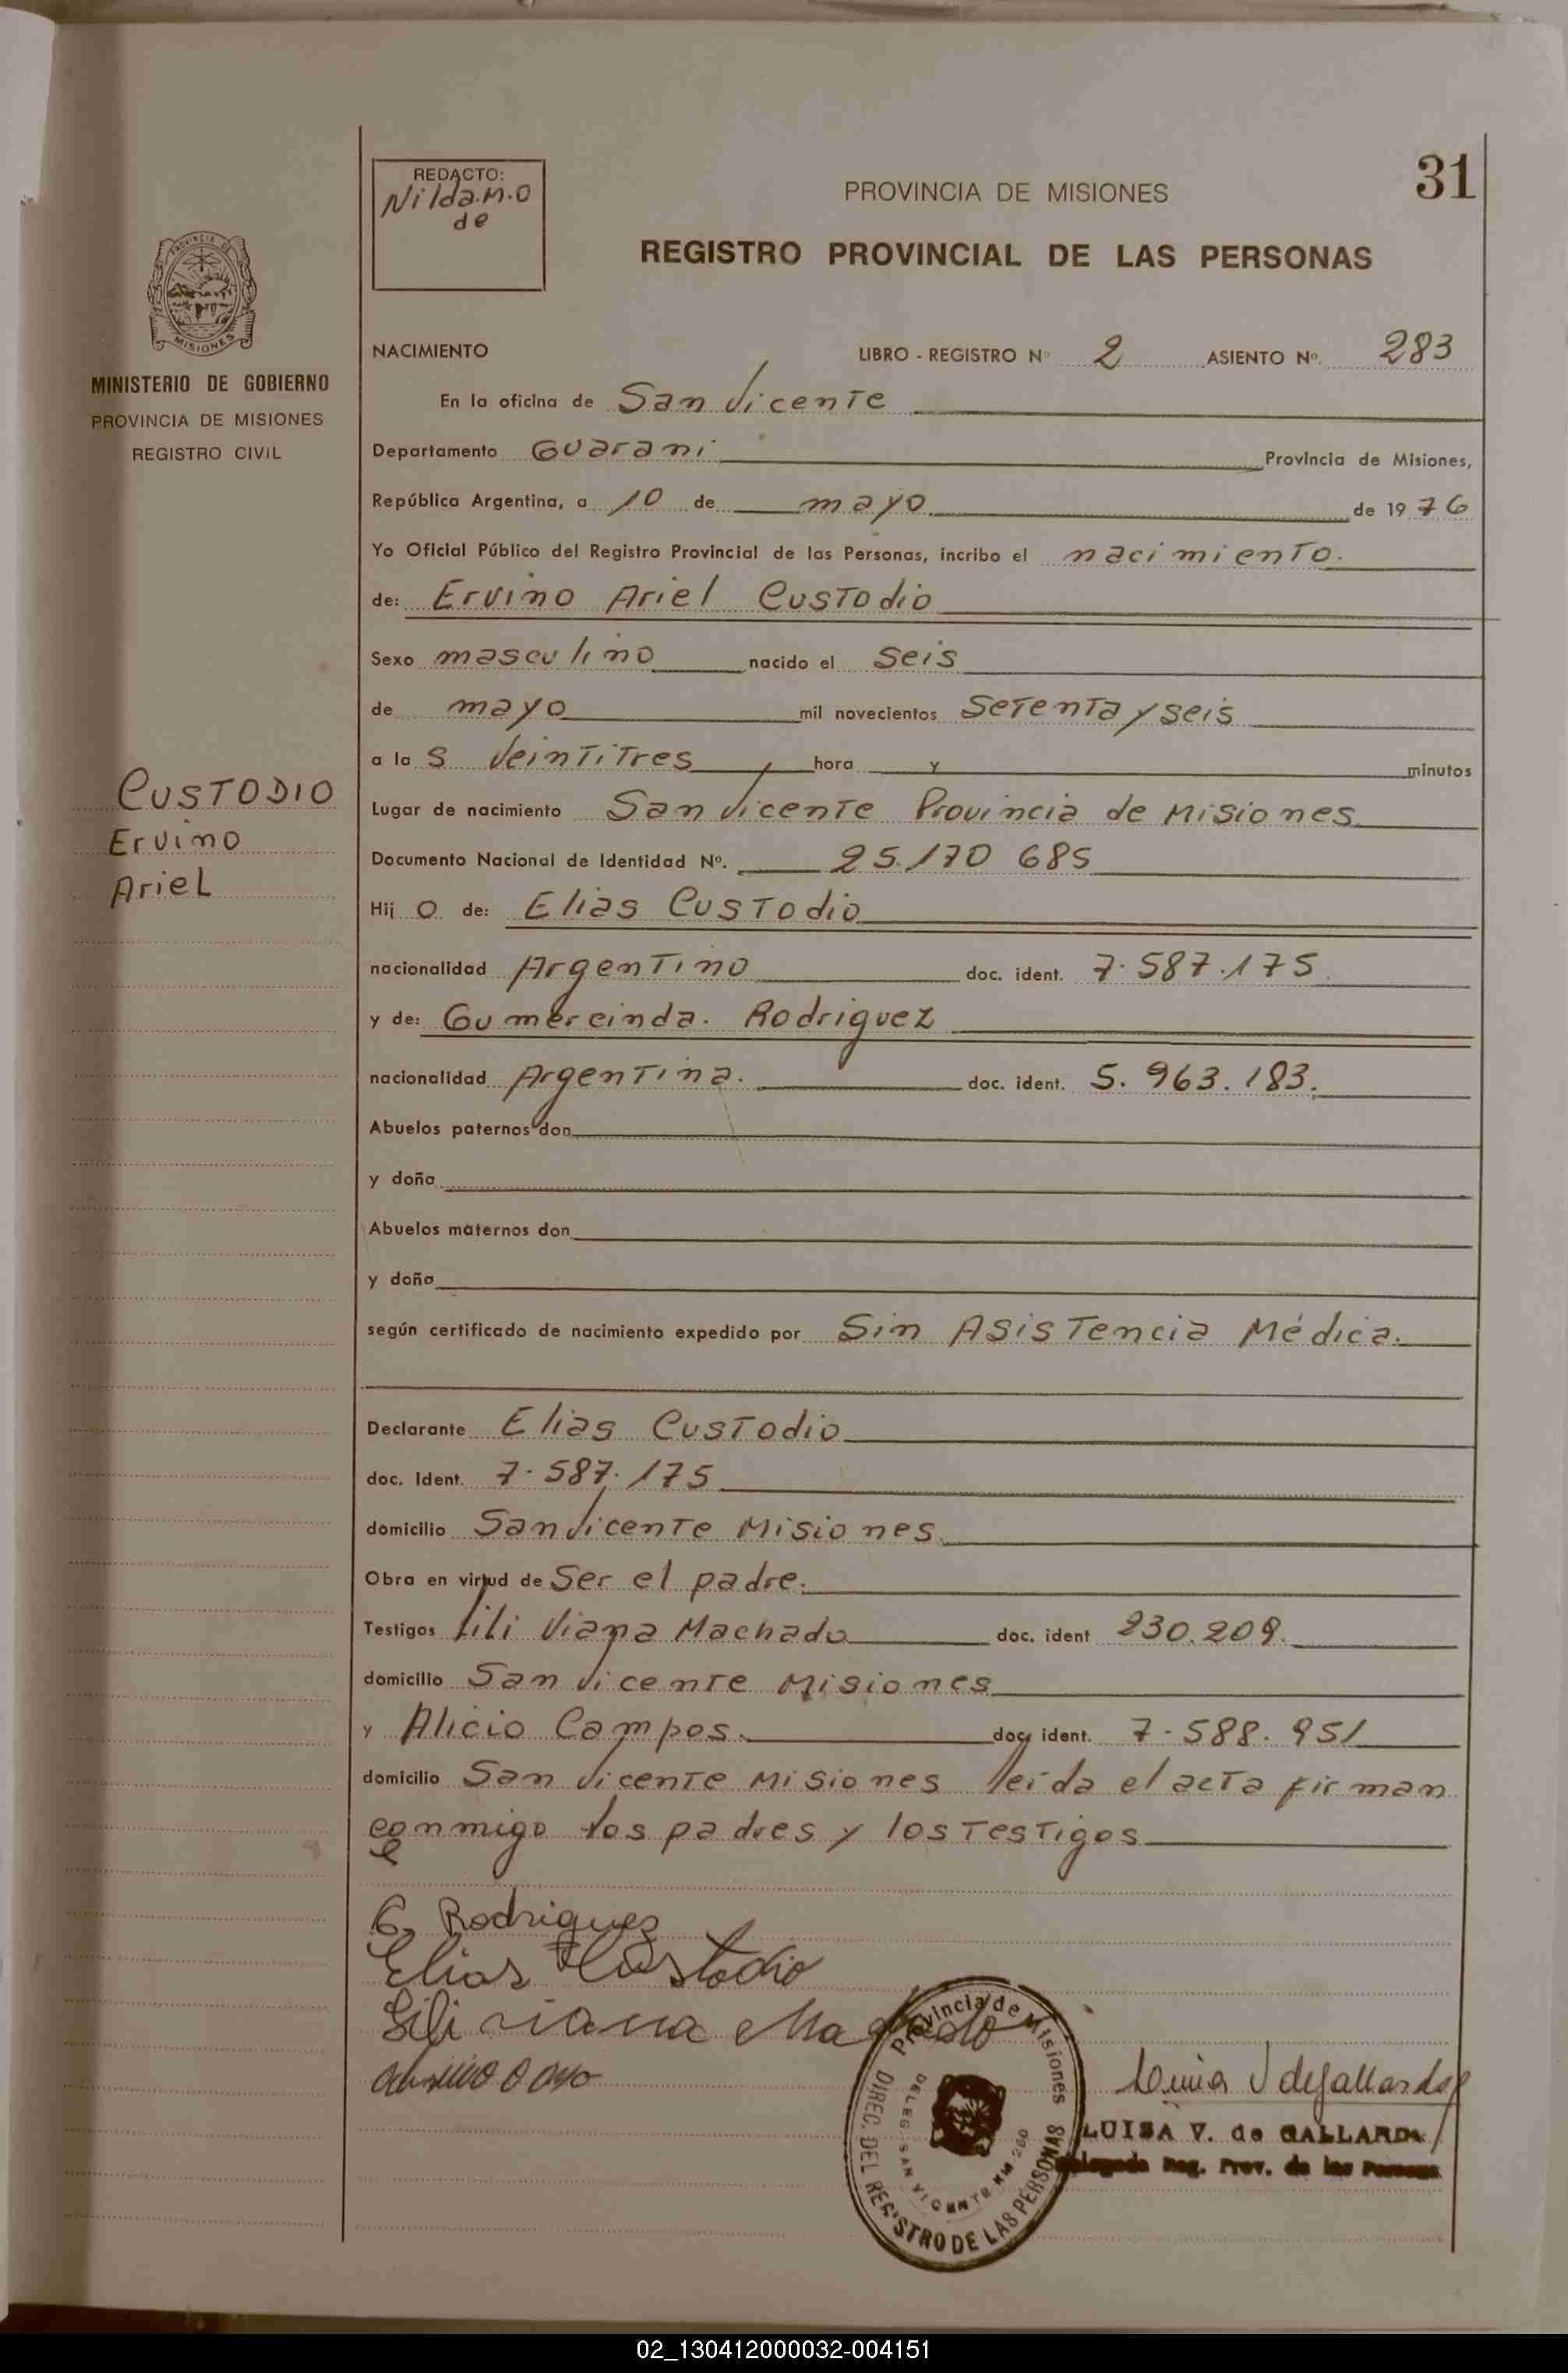 31
REDACTO:
Nilda.M.O
de
PROVINCIA DE MISIONES
REGISTRO PROVINCIAL DE LAS PERSONAS
PROVINCIA DE
MISIONES
MINISTERIO DE GOBIERNO
PROVINCIA DE MISIONES
REGISTRO CIVIL
NACIMIENTO LIBRO - REGISTRO Nº 2 ASIENTO Nº. 283
En la oficina de San Vicente
Departamento Guarani Provincia de Misiones,
República Argentina, a 10 de mayo de 19 76
Yo Oficial Público del Registro Provincial de las Personas, incribo el nacimiento.
de: Ervino Ariel Custodio
Sexo masculino nacido el Seis
de mayo mil novecientos Setenta y seis
a la s Veintitres hora y minutos
CUSTODIO
Ervino
Ariel
Lugar de nacimiento San Vicente Provincia de Misiones
Documento Nacional de Identidad Nº. 25.170 685
Hij o de: Elias Custodio
nacionalidad Argentino doc. ident. 7.587.175
y de: Gumercinda. Rodriguez
nacionalidad Argentina. doc. ident. 5.963.183.
Abuelos paternos don
y doña
Abuelos maternos don
y doña
según certificado de nacimiento expedido por Sin Asistencia Médica.
Declarante Elias Custodio
doc. Ident. 7.587.175
domicilio San Vicente Misiones
Obra en virtud de Ser el padre.
Testigos Lili Viana Machado doc. ident 230.209.
domicilio San Vicente Misiones
y Alicio Campos. doc. ident. 7-588.951
domicilio San Vicente Misiones leida el acta firman
conmigo los padres y los Testigos
G. Rodriguez
Elias Custodio
Lili viana Machado
Provincia de Misiones
DIREC. DEL REGISTRO DE LAS PERSONAS
DELEG. SAN VICENTE KM 260
Luisa V de Gallardo
LUISA V. de GALLARDO
Delegada Reg. Prov. de las Personas
02_130412000032-004151